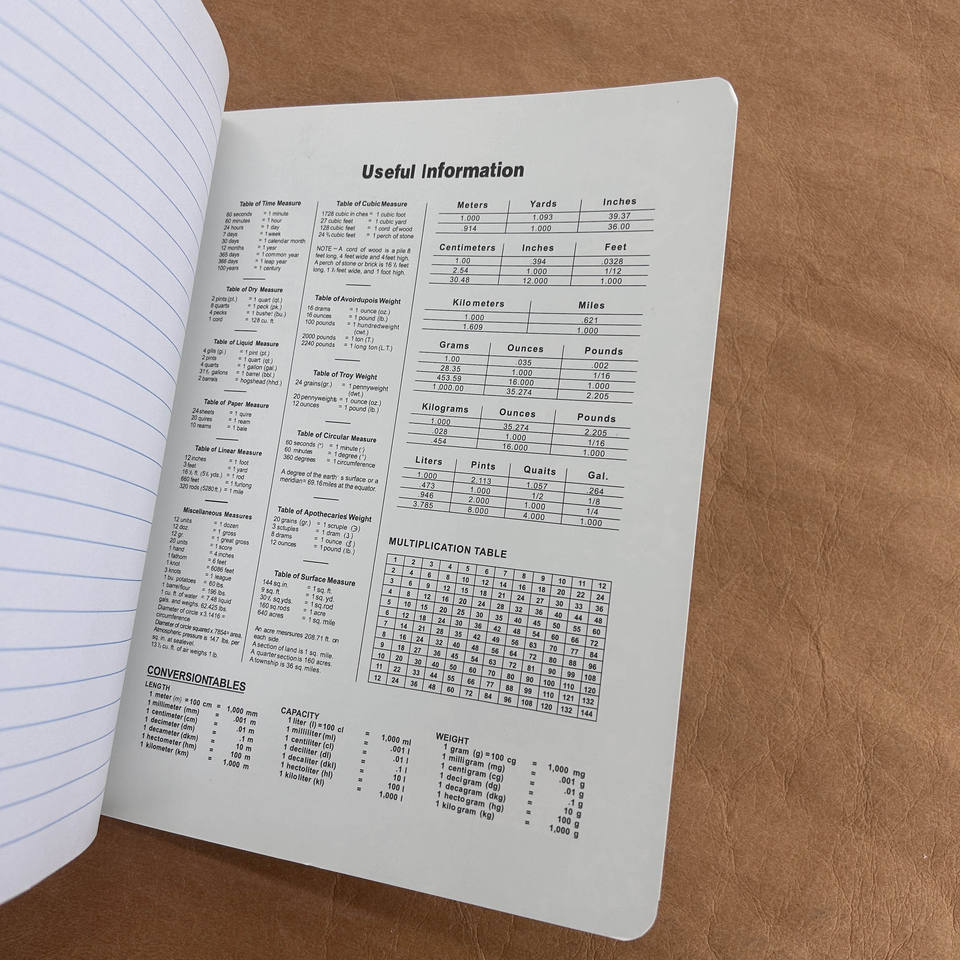 Useful Information
Table of Time Measure
60 seconds = 1 minute
60 minutes = 1 hour
24 hours = 1 day
7 days = 1 week
30 days = 1 calendar month
12 months = 1 year
365 days = 1 common year
366 days = 1 leap year
100 years = 1 century
Table of Dry Measure
2 pints (pt.) = 1 quart (qt.)
8 quarts = 1 peck (pk.)
4 pecks = 1 bushel (bu.)
1 cord = 128 cu. ft.
Table of Liquid Measure
4 gills (gi.) = 1 pint (pt.)
2 pints = 1 quart (qt.)
4 quarts = 1 gallon (gal.)
31½ gallons = 1 barrel (bbl.)
2 barrels = hogshead (hhd.)
Table of Paper Measure
24 sheets = 1 quire
20 quires = 1 ream
10 reams = 1 bale
Table of Linear Measure
12 inches = 1 foot
3 feet = 1 yard
16 ½ ft. (5½ yds.) = 1 rod
660 feet = 1 furlong
320 rods (5280 ft.) = 1 mile
Miscellaneous Measures
12 units = 1 dozen
12 doz. = 1 gross
12 gr. = 1 great gross
20 units = 1 score
1 hand = 4 inches
1 fathom = 6 feet
1 knot = 6086 feet
3 knots = 1 league
1 bu. potatoes = 60 lbs.
1 barrel flour = 196 lbs.
1 cu. ft. of water = 7.48 liquid
gals. and weighs, 62.425 lbs.
Diameter of circle x 3.1416 =
circumference
Diameter of circle squared x .7854 = area.
Atmospheric pressure is 14.7 lbs. per
sq. in. at sealevel.
13 ½ cu. ft. of air weighs 1 lb.
Table of Cubic Measure
1728 cubic in ches = 1 cubic foot
27 cubic feet = 1 cubic yard
128 cubic feet = 1 cord of wood
24 ¾ cubic feet = 1 perch of stone
NOTE – A cord of wood is a pile 8
feet long, 4 feet wide and 4 feet high.
A perch of stone or brick is 16 ½ feet
long, 1 ½ feet wide, and 1 foot high.
Table of Avoirdupois Weight
16 drams = 1 ounce (oz.)
16 ounces = 1 pound (lb.)
100 pounds = 1 hundredweight
(cwt.)
2000 pounds = 1 ton (T.)
2240 pounds = 1 long ton (L.T.)
Table of Troy Weight
24 grains (gr.) = 1 pennyweight
(dwt.)
20 pennyweights = 1 ounce (oz.)
12 ounces = 1 pound (lb.)
Table of Circular Measure
60 seconds (") = 1 minute (')
60 minutes = 1 degree (°)
360 degrees = 1 circumference
A degree of the earth s surface or a
meridian = 69.16 miles at the equator.
Table of Apothecaries Weight
20 grains (gr.) = 1 scruple
3 sctuples = 1 dram
8 drams = 1 ounce
12 ounces = 1 pound (lb.)
Table of Surface Measure
144 sq. in. = 1 sq. ft.
9 sq. ft. = 1 sq. yd.
30 ¼ sq. yds. = 1 sq. rod
160 sq. rods = 1 acre
640 acres = 1 sq. mile
An acre mesrsures 208.71 ft. on
each side.
A section of land is 1 sq. mile.
A quarter section is 160 acres.
A township is 36 sq. miles.
Meters Yards Inches
1.000 1.093 39.37
.914 1.000 36.00
Centimeters Inches Feet
1.00 .394 .0328
2.54 1.000 1/12
30.48 12.000 1.000
Kilometers Miles
1.000 .621
1.609 1.000
Grams Ounces Pounds
1.00 .035 .002
28.35 1.000 1/16
453.59 16.000 1.000
1,000.00 35.274 2.205
Kilograms Ounces Pounds
1.000 35.274 2.205
.028 1.000 1/16
.454 16.000 1.000
Liters Pints Quaits Gal.
1.000 2.113 1.057 .264
.473 1.000 1/2 1/8
.946 2.000 1.000 1/4
3.785 8.000 4.000 1.000
MULTIPLICATION TABLE
1 2 3 4 5 6 7 8 9 10 11 12
2 4 6 8 10 12 14 16 18 20 22 24
3 6 9 12 15 18 21 24 27 30 33 36
4 8 12 16 20 24 28 32 36 40 44 48
5 10 15 20 25 30 35 40 45 50 55 60
6 12 18 24 30 36 42 48 54 60 66 72
7 14 21 28 35 42 49 56 63 70 77 84
8 16 24 32 40 48 56 64 72 80 88 96
9 18 27 36 45 54 63 72 81 90 99 108
10 20 30 40 50 60 70 80 90 100 110 120
11 22 33 44 55 66 77 88 99 110 121 132
12 24 36 48 60 72 84 96 108 120 132 144
CONVERSION TABLES
LENGTH
1 meter (m) = 100 cm = 1,000 mm
1 millimeter (mm) = .001 m
1 centimeter (cm) = .01 m
1 decimeter (dm) = .1 m
1 decameter (dkm) = 10 m
1 hectometer (hm) = 100 m
1 kilometer (km) = 1,000 m
CAPACITY
1 liter (l) = 100 cl = 1,000 ml
1 milliliter (ml) = .001 l
1 centiliter (cl) = .01 l
1 deciliter (dl) = .1 l
1 decaliter (dkl) = 10 l
1 hectoliter (hl) = 100 l
1 kiloliter (kl) = 1,000 l
WEIGHT
1 gram (g) = 100 cg = 1,000 mg
1 milligram (mg) = .001 g
1 centigram (cg) = .01 g
1 decigram (dg) = .1 g
1 decagram (dkg) = 10 g
1 hectogram (hg) = 100 g
1 kilogram (kg) = 1,000 g